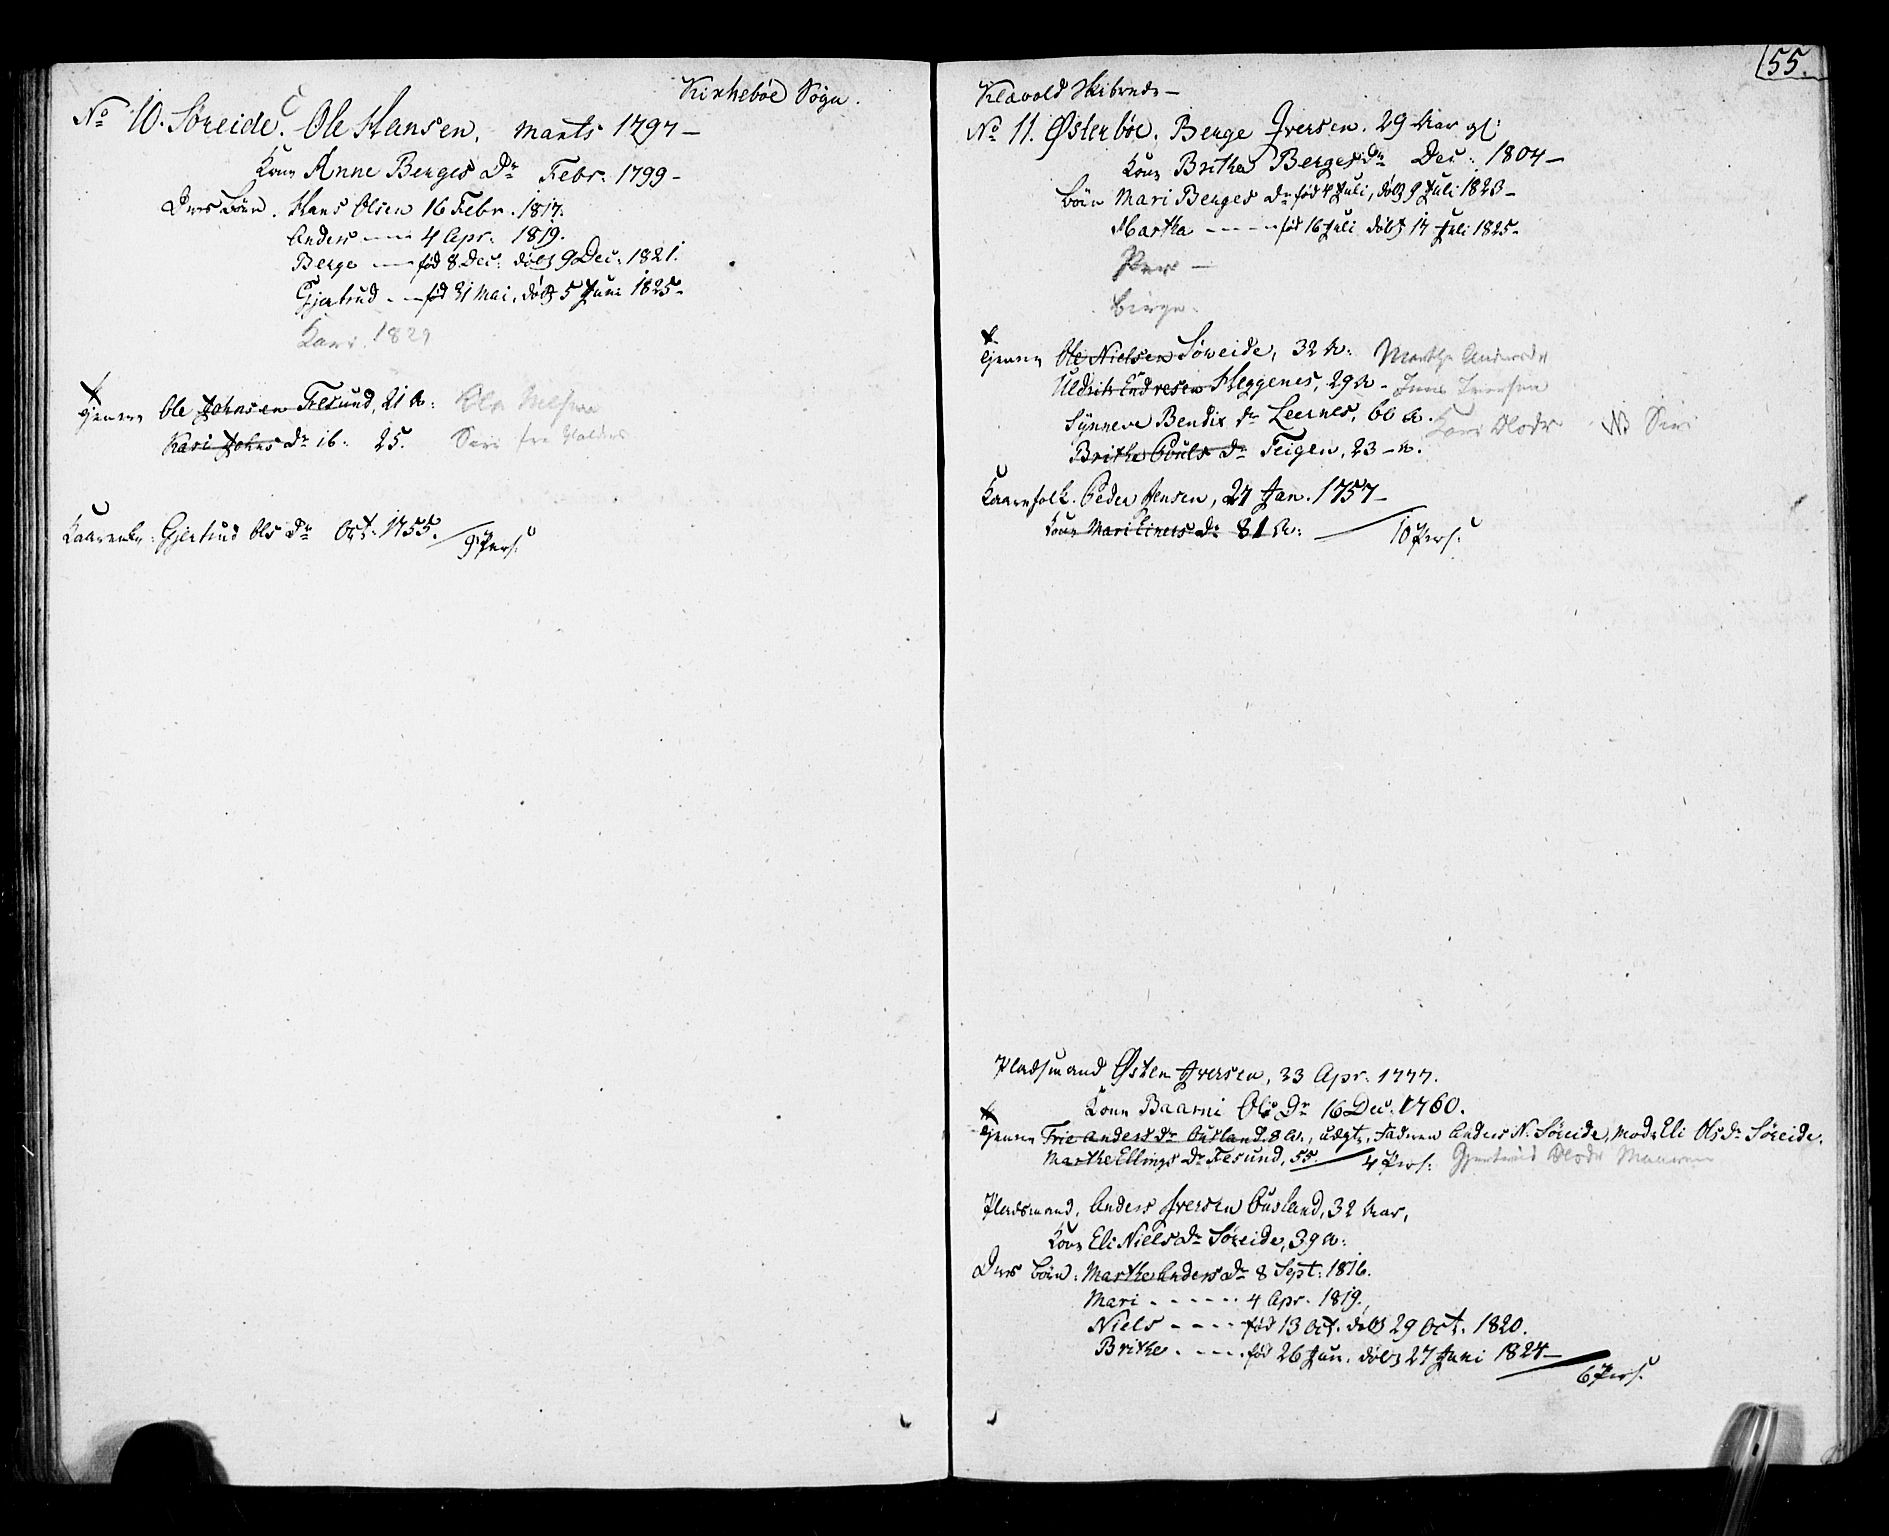 Kirkebøe Sogn.
No 10. Søreide. Ole Hansen, Marts 1797 —
Kone Anne Berges Dr Febr. 1799 -
Deres Børn. Hans Olsen 16 Febr. 1817.
Anders — 4 Apr. 1819.
Berge — fød 8 Dec: døbt 9 Dec: 1821.
Gjertrud - - fød 31 Mai, døbt 5 Juni 1825 -
Kari 1829
Tjenere Ole Johnsen Fresund, 21 A:
Kari Johns Dr ib: 25. Siri fra Valders
Kaarenke: Gjertrud Ols Dr Oct. 1755. 9 Pers:
55.
Klævold Skibrede —
No 11. Østerbøe. Berge Iversen. 29 Aar gl:
Kone Brithe Berges Dr Dec: 1804 —
Børn Mari Berges Dr fød 4 Juli, døbt 9 Juli 1823 —
Martha - - - - fød 16 Juli døbt 17 Juli 1825 -
Per —
Birge.
Tjenere Ole Nielsen Søreide, 32 A: Marthe Andersdr
Uldrik Endresen Heggenes, 29 A - Jens Iversen
Synneve Bendix Dr Leernes, 60 A. Kari Olsdr NB Siri
Brithe Pouls Dr Feigen, 23 - A.
Kaarefolk. Peder Jensen, 27 Jan. 1757 —
Kone Mari Einers Dr 81 A: — 10 Pers:
Pladsmand Østen Iversen, 23 Apr. 1777.
Kone Baarni Ols Dr 16 Dec. 1760.
Tjenere Frie Anders Dr Ousland, 8 A., udgt, Faderen Anders N. Søreide, Mod: Eli Ols Dr Søreide.
Marthe Ellings Dr Fresund, 55. 4 Pers: Gjertrud Olsdr Maaren
Pladsmand, Anders Iversen Ousland, 32 Aar,
Kone Eli Niels Dr Søreide, 39 A:
Deres Børn: Marthe Anders Dr 8 Sept: 1816.
Mari - - - - - 4 Apr. 1819.
Niels - - - - fød 13 Oct. døbt 29 Oct. 1820.
Brithe - - - - fød 26 Jun. døbt 27 Juni 1824 —
6 Pers: